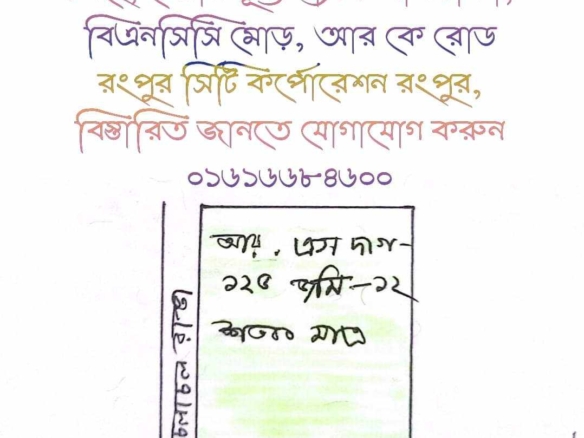 বিএনসিসি মোড়, আর কে রোড
রংপুর সিটি কর্পোরেশন রংপুর,
বিস্তারিত জানতে যোগাযোগ করুন
০১৬১৬৬৮৪৬০০
আর. এস দাগ-
১২৫ জমি-১২
শতক মাত্র
চলাচল রাস্তা